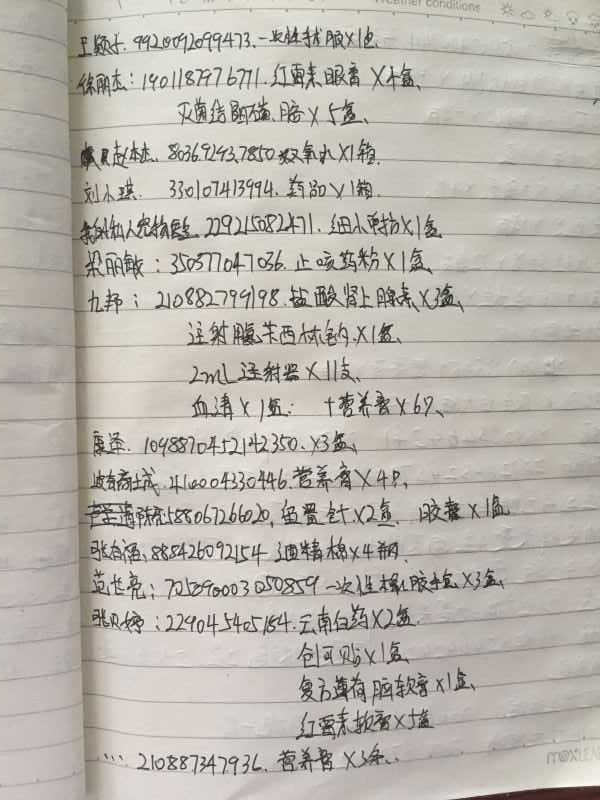 Weather conditions
王颖才. 9920092099473. 一次性手术服×1包
徐丽杰：1901187976771. 红霉素眼膏×4盒、
灭菌结晶磺胺×5盒、
赵杰杰. 803692937850 双氧水×1箱
刘小琪. 330107413994. 药品×1箱
229215082471. 细小单抗×1盒
梁丽敏：350577047036. 止咳药粉×1盒、
九邦：210882799198. 盐酸肾上腺素×3盒、
注射用氨苄西林钠、×1盒、
2mL 注射器×11支、
血清×1盒： 十营养膏×6只、
康泽. 1098870452142350. ×3盒、
416004330446. 营养膏×4只、
588067266020, 留置针×2盒、胶囊×1盒
888426092154 酒精棉×4瓶、
范世亮：702590003050859 一次性橡胶手套×3盒、
张贝婷：229045405184. 云南白药×2盒、
创可贴×1盒、
复方薄荷脑软膏×1盒、
红霉素软膏×5盒
... 210887347936. 营养膏×3条、
MAXLEAF